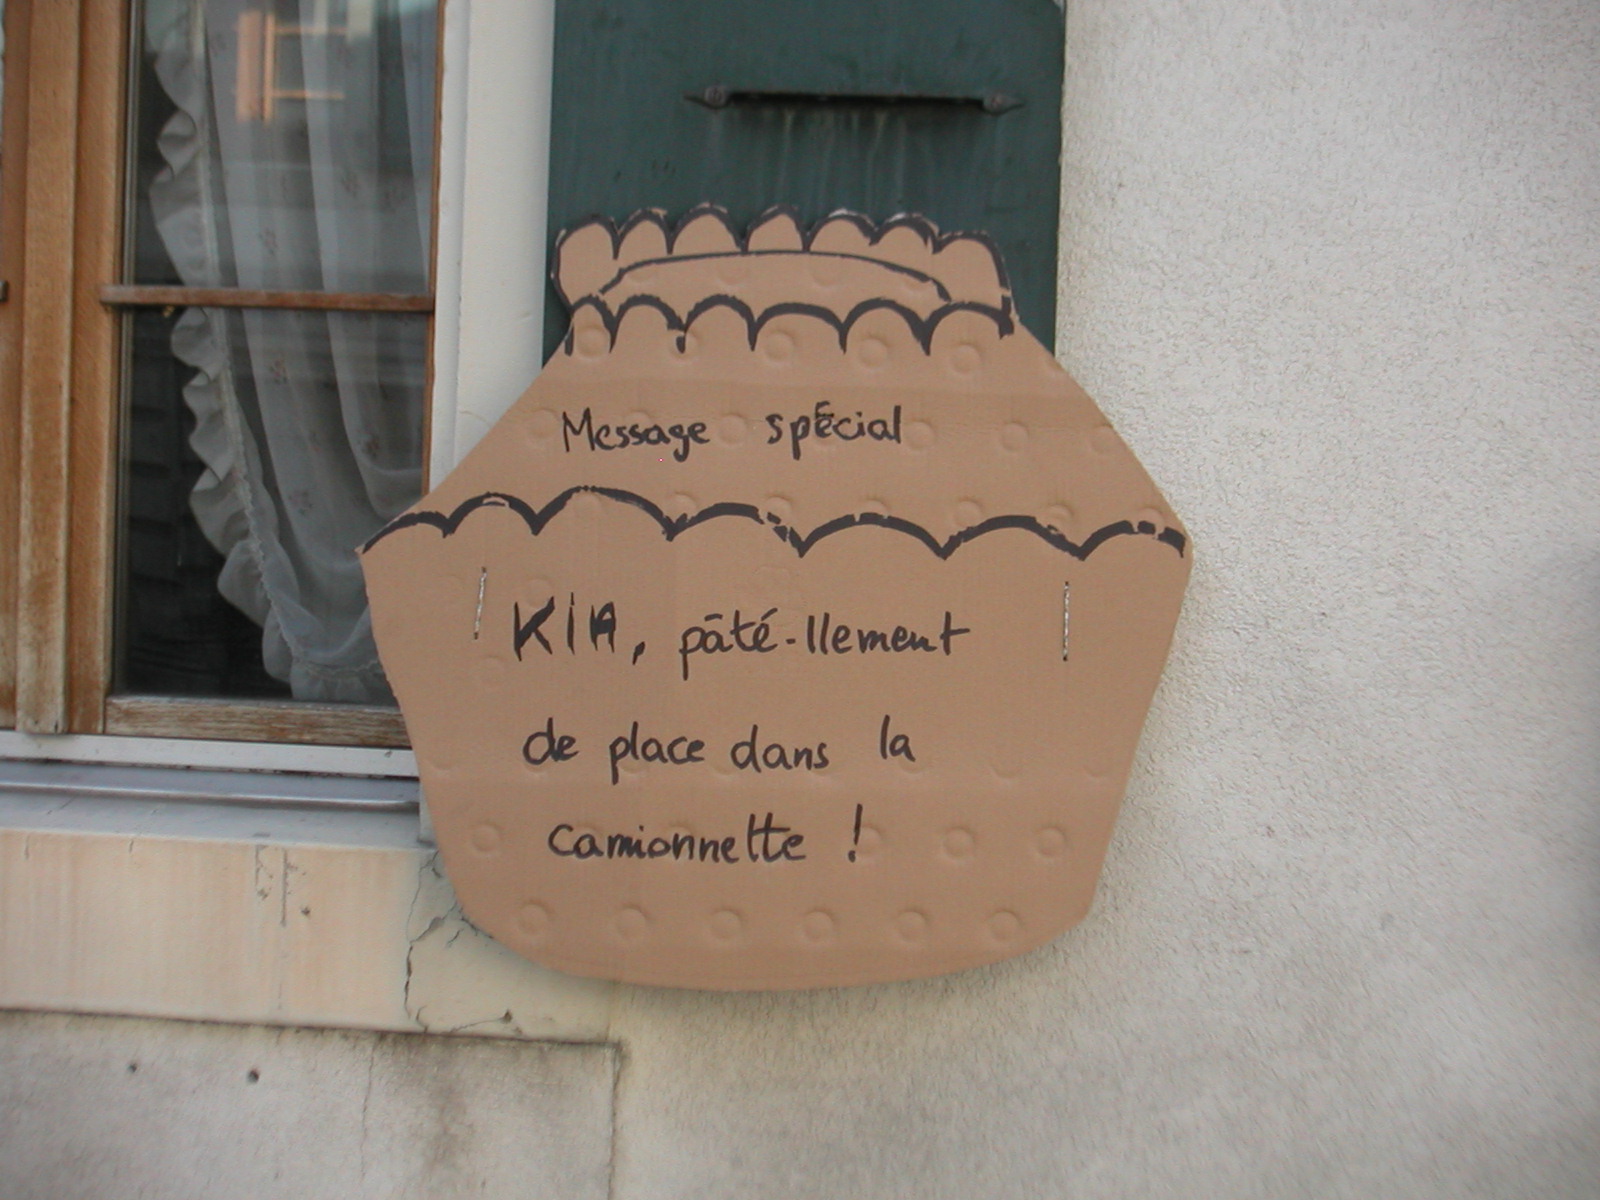 Message spÉcial
KIA, pâté-llement
de place dans la
camionnette !